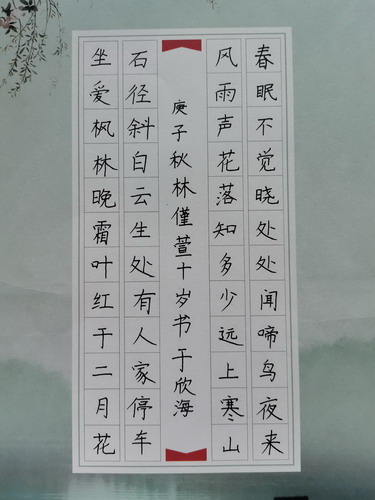 春眠不觉晓处处闻啼鸟夜来
风雨声花落知多少远上寒山
庚子秋林僅萱十岁书于欣海
石径斜白云生处有人家停车
坐爱枫林晚霜叶红于二月花